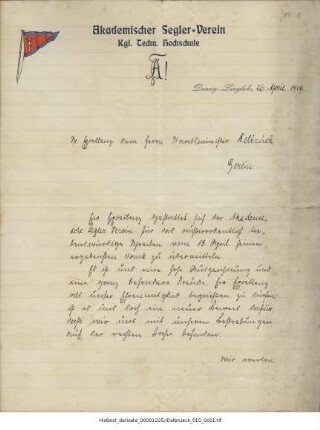 Akademischer Segler-Verein
Kgl. Techn. Hochschule
A!
Danzig-Langfuhr, 26 April 1910
Sr. Exzellenz dem Herrn Staatsminister Delbrück
Berlin
Ew Exzellenz gestattet sich der Akademi-
sche Segler Verein für das außerordentlich lie-
benswürdige Schreiben vom 13 April seinen
ergebensten Dank zu übermitteln.
Es ist uns eine hohe Auszeichnung und
eine ganz besondere Freude, Ew Exzellenz
als unser Ehrenmitglied begrüßen zu dürfen
ist es uns doch ein neuer Beweis dafür
daß wir uns mit unseren Bestrebungen
auf der rechten Bahn befinden.
Wir werden
HoBest_derivate_00001225/Delbrueck_015_0001.tif